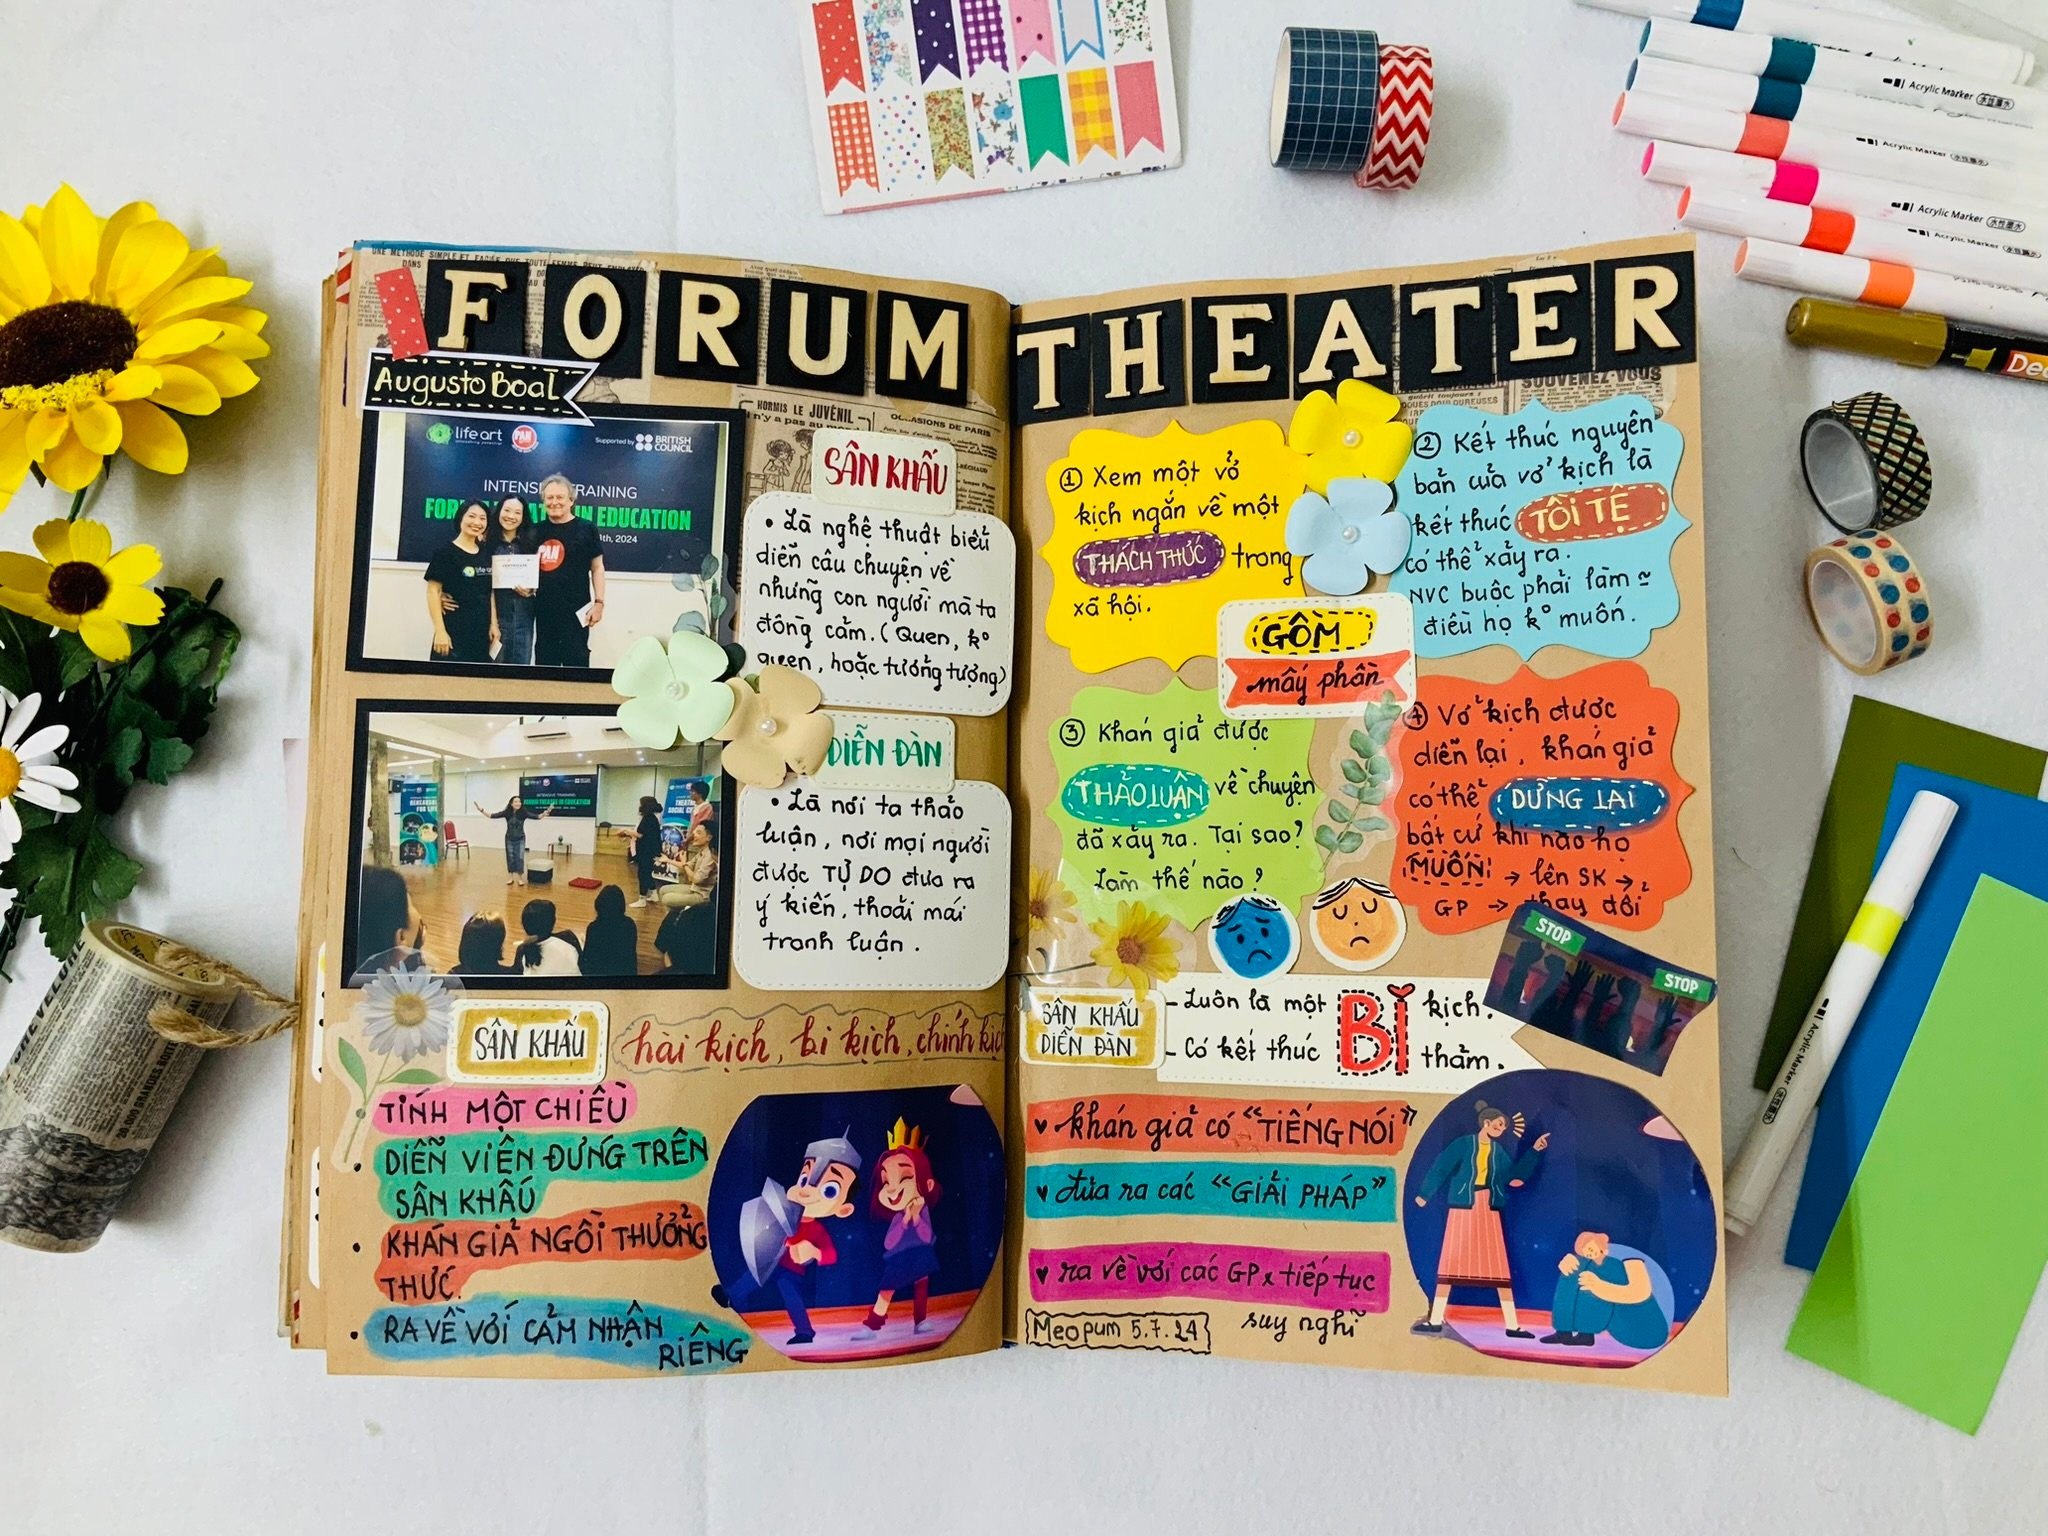 FORUM THEATER
Augusto Boal
life art
PAN
Supported by
BRITISH
COUNCIL
INTENSIVE TRAINING
IN EDUCATION
2024
SÂN KHẤU
• Là nghệ thuật biểu
diễn câu chuyện về
những con người mà ta
đồng cảm. (Quen, k°
quen, hoặc tưởng tượng)
DIỄN ĐÀN
• Là nơi ta thảo
luận, nơi mọi người
được TỰ DO đưa ra
ý kiến, thoải mái
tranh luận.
SÂN KHẤU
hài kịch, bi kịch, chính kịch
TÍNH MỘT CHIỀU
• DIỄN VIÊN ĐỨNG TRÊN
SÂN KHẤU
• KHÁN GIẢ NGỒI THƯỞNG
THỨC.
• RA VỀ VỚI CẢM NHẬN
RIÊNG
① Xem một vở
kịch ngắn về một
THÁCH THỨC trong
xã hội.
② Kết thúc nguyên
bản của vở kịch là
kết thúc TỒI TỆ
có thể xảy ra.
NVC buộc phải làm ≃
điều họ k° muốn.
GỒM
mấy phần
③ Khán giả được
THẢO LUẬN về chuyện
đã xảy ra. Tại sao?
Làm thế nào?
④ Vở kịch được
diễn lại, khán giả
có thể DỪNG LẠI
bất cứ khi nào họ
MUỐN! → lên SK →
GP → thay đổi
STOP
STOP
SÂN KHẤU
DIỄN ĐÀN
- Luôn là một BI kịch.
- Có kết thúc BI thảm.
♥ khán giả có "TIẾNG NÓI"
♥ đưa ra các "GIẢI PHÁP"
♥ ra về với các GP x tiếp tục
suy nghĩ
Meopum 5.7.24
HORMIS LE JUVÉNIL
OCCASIONS DE PARIS
SOUVENEZ-VOUS
Acrylic Marker
Acrylic Marker
Acrylic Marker
Acrylic Marker
Acrylic Marker
Acrylic Marker